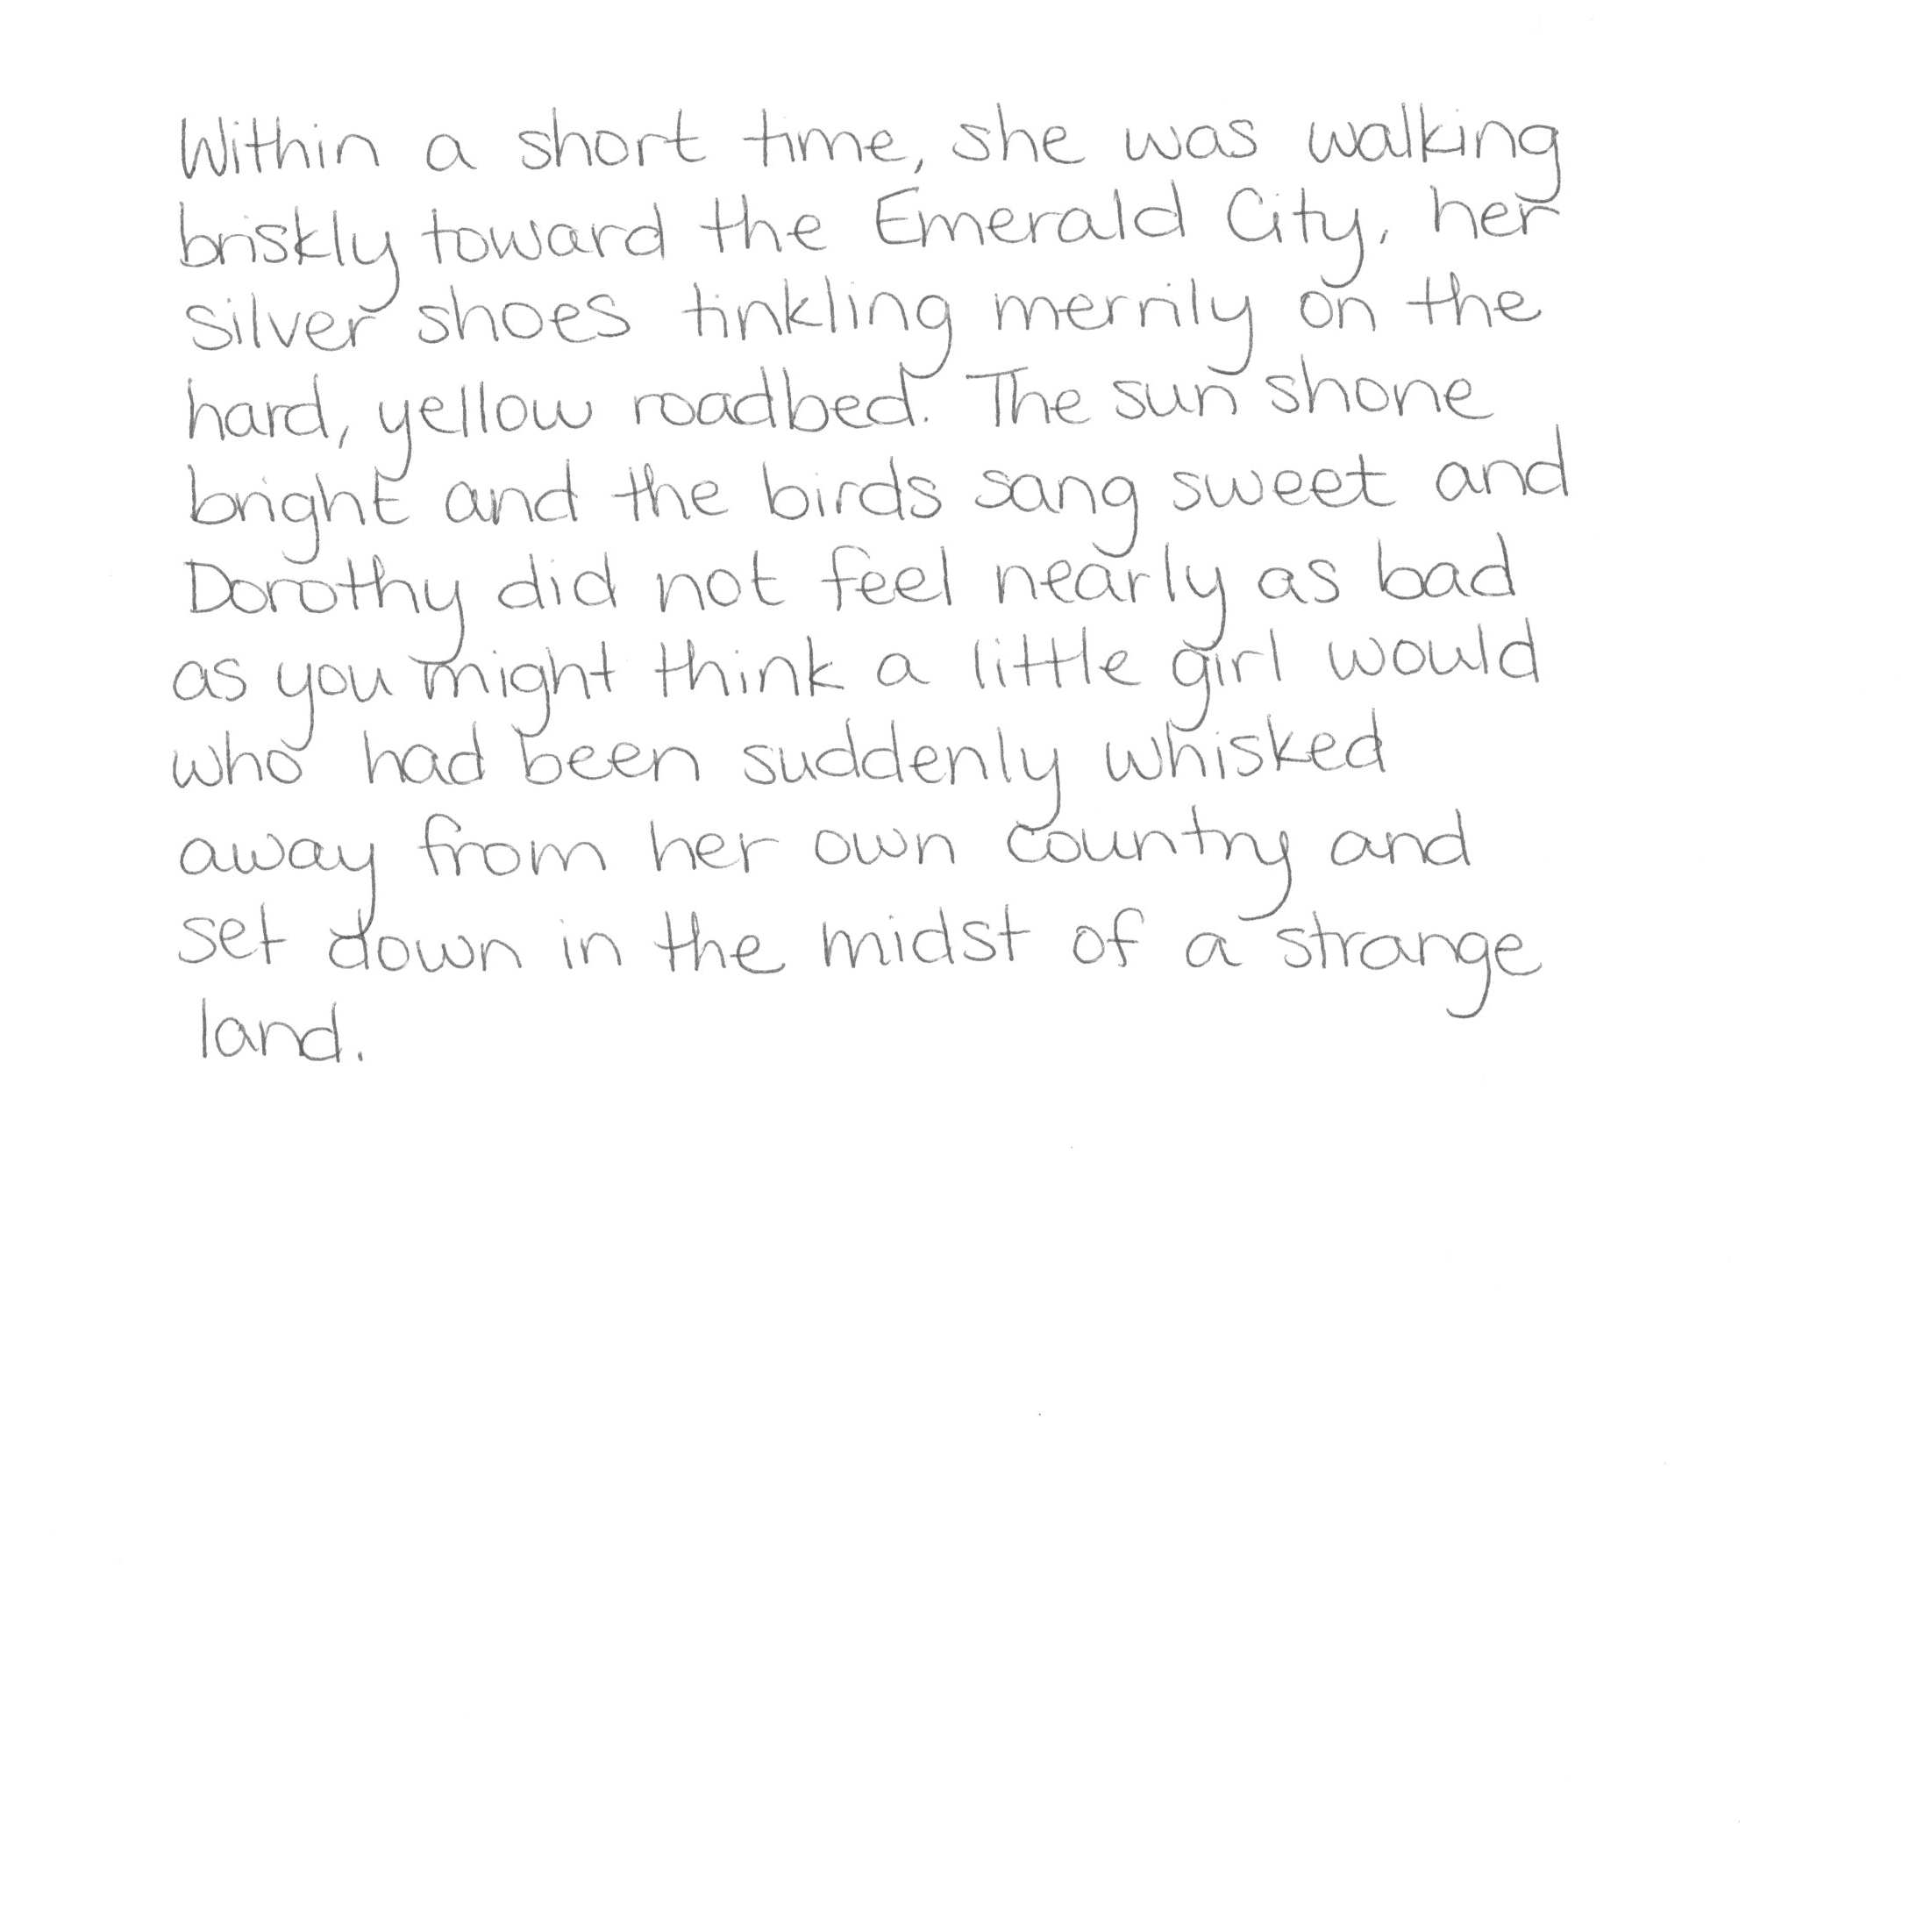 Within a short time, she was walking
briskly toward the Emerald City, her
silver shoes tinkling merrily on the
hard, yellow roadbed. The sun shone
bright and the birds sang sweet and
Dorothy did not feel nearly as bad
as you might think a little girl would
who had been suddenly whisked
away from her own country and
set down in the midst of a strange
land.